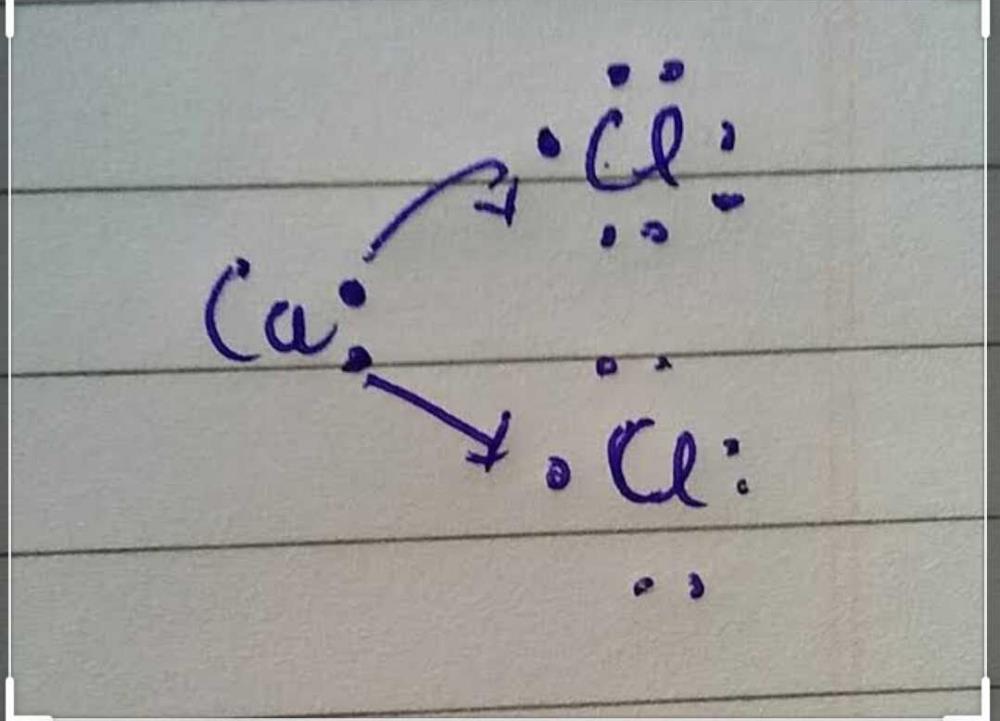 Cl
Ca
Cl